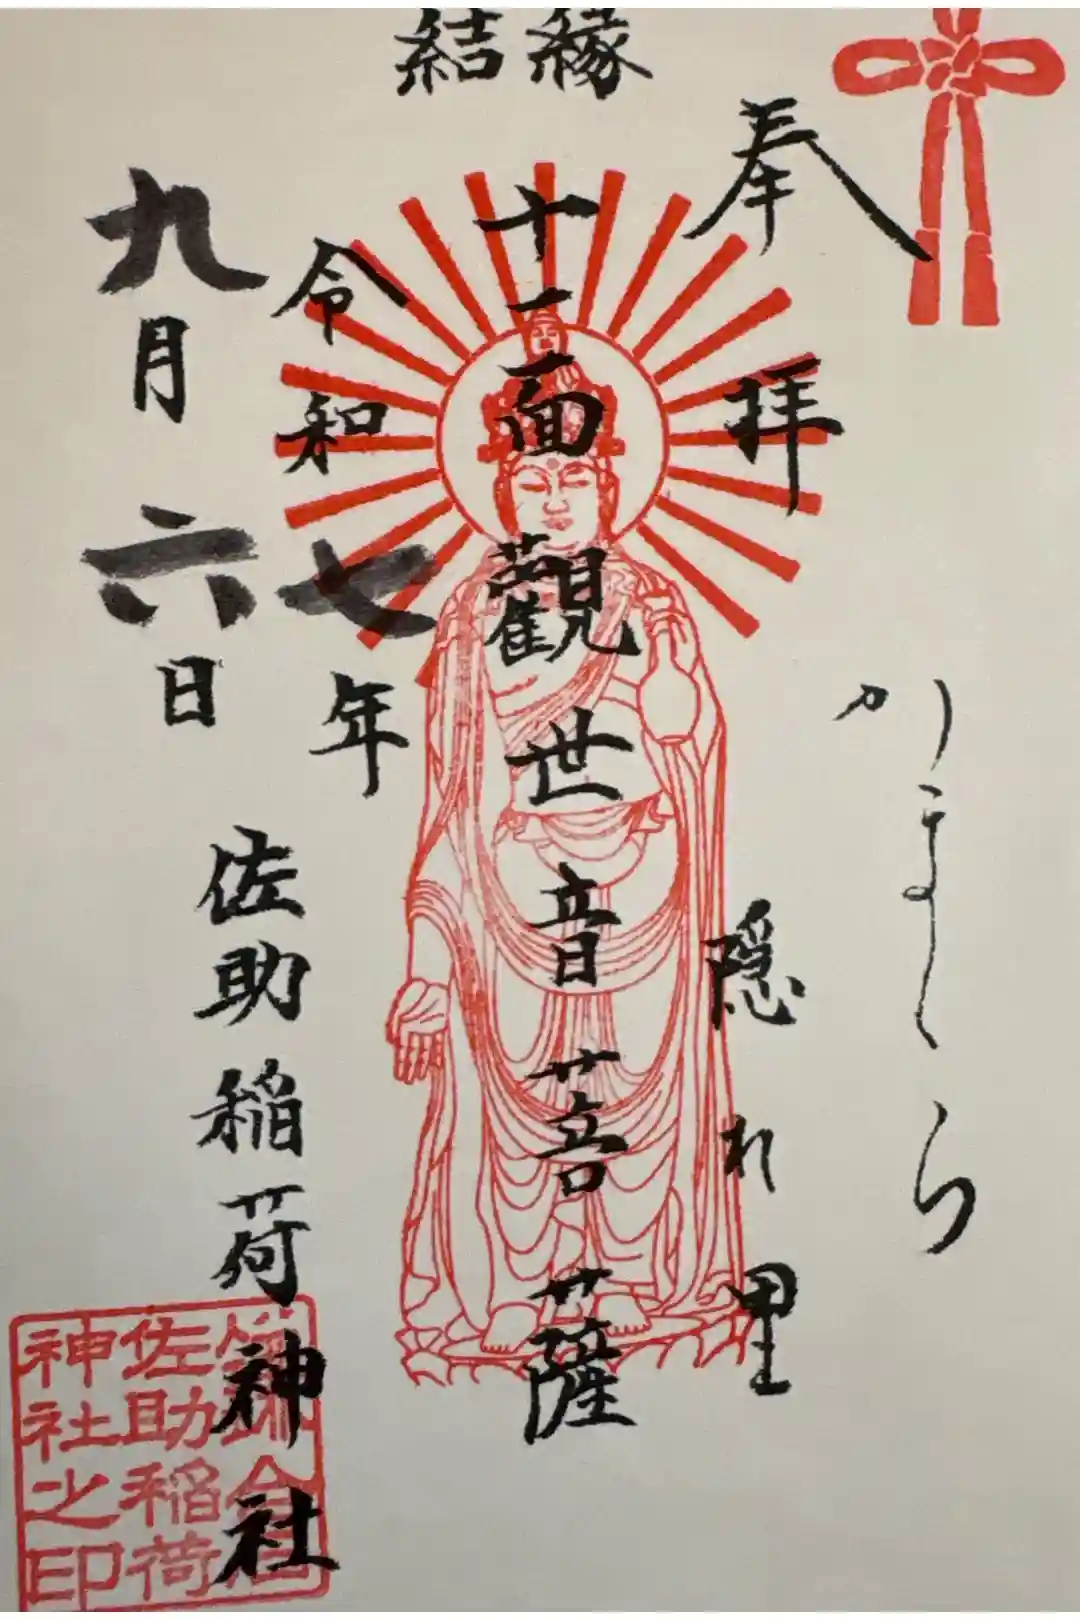 結縁
奉拝
かまくら
隠れ里
十一面觀世音菩薩
令和七年
九月六日
佐助稲荷神社
佐助稲荷
神社之印